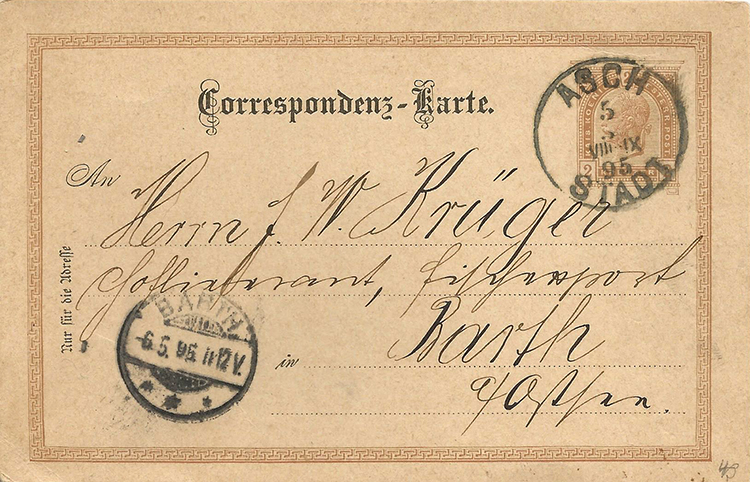 Correspondenz-Karte.
ASCH
5
5
VIII-IX
95
STADT
2
An
Herrn J. W. Krüger
Hoflieferant, Fischexport
in Barth
a/Ostsee.
Nur für die Adresse
BARTH
6.5.95.11-12V.